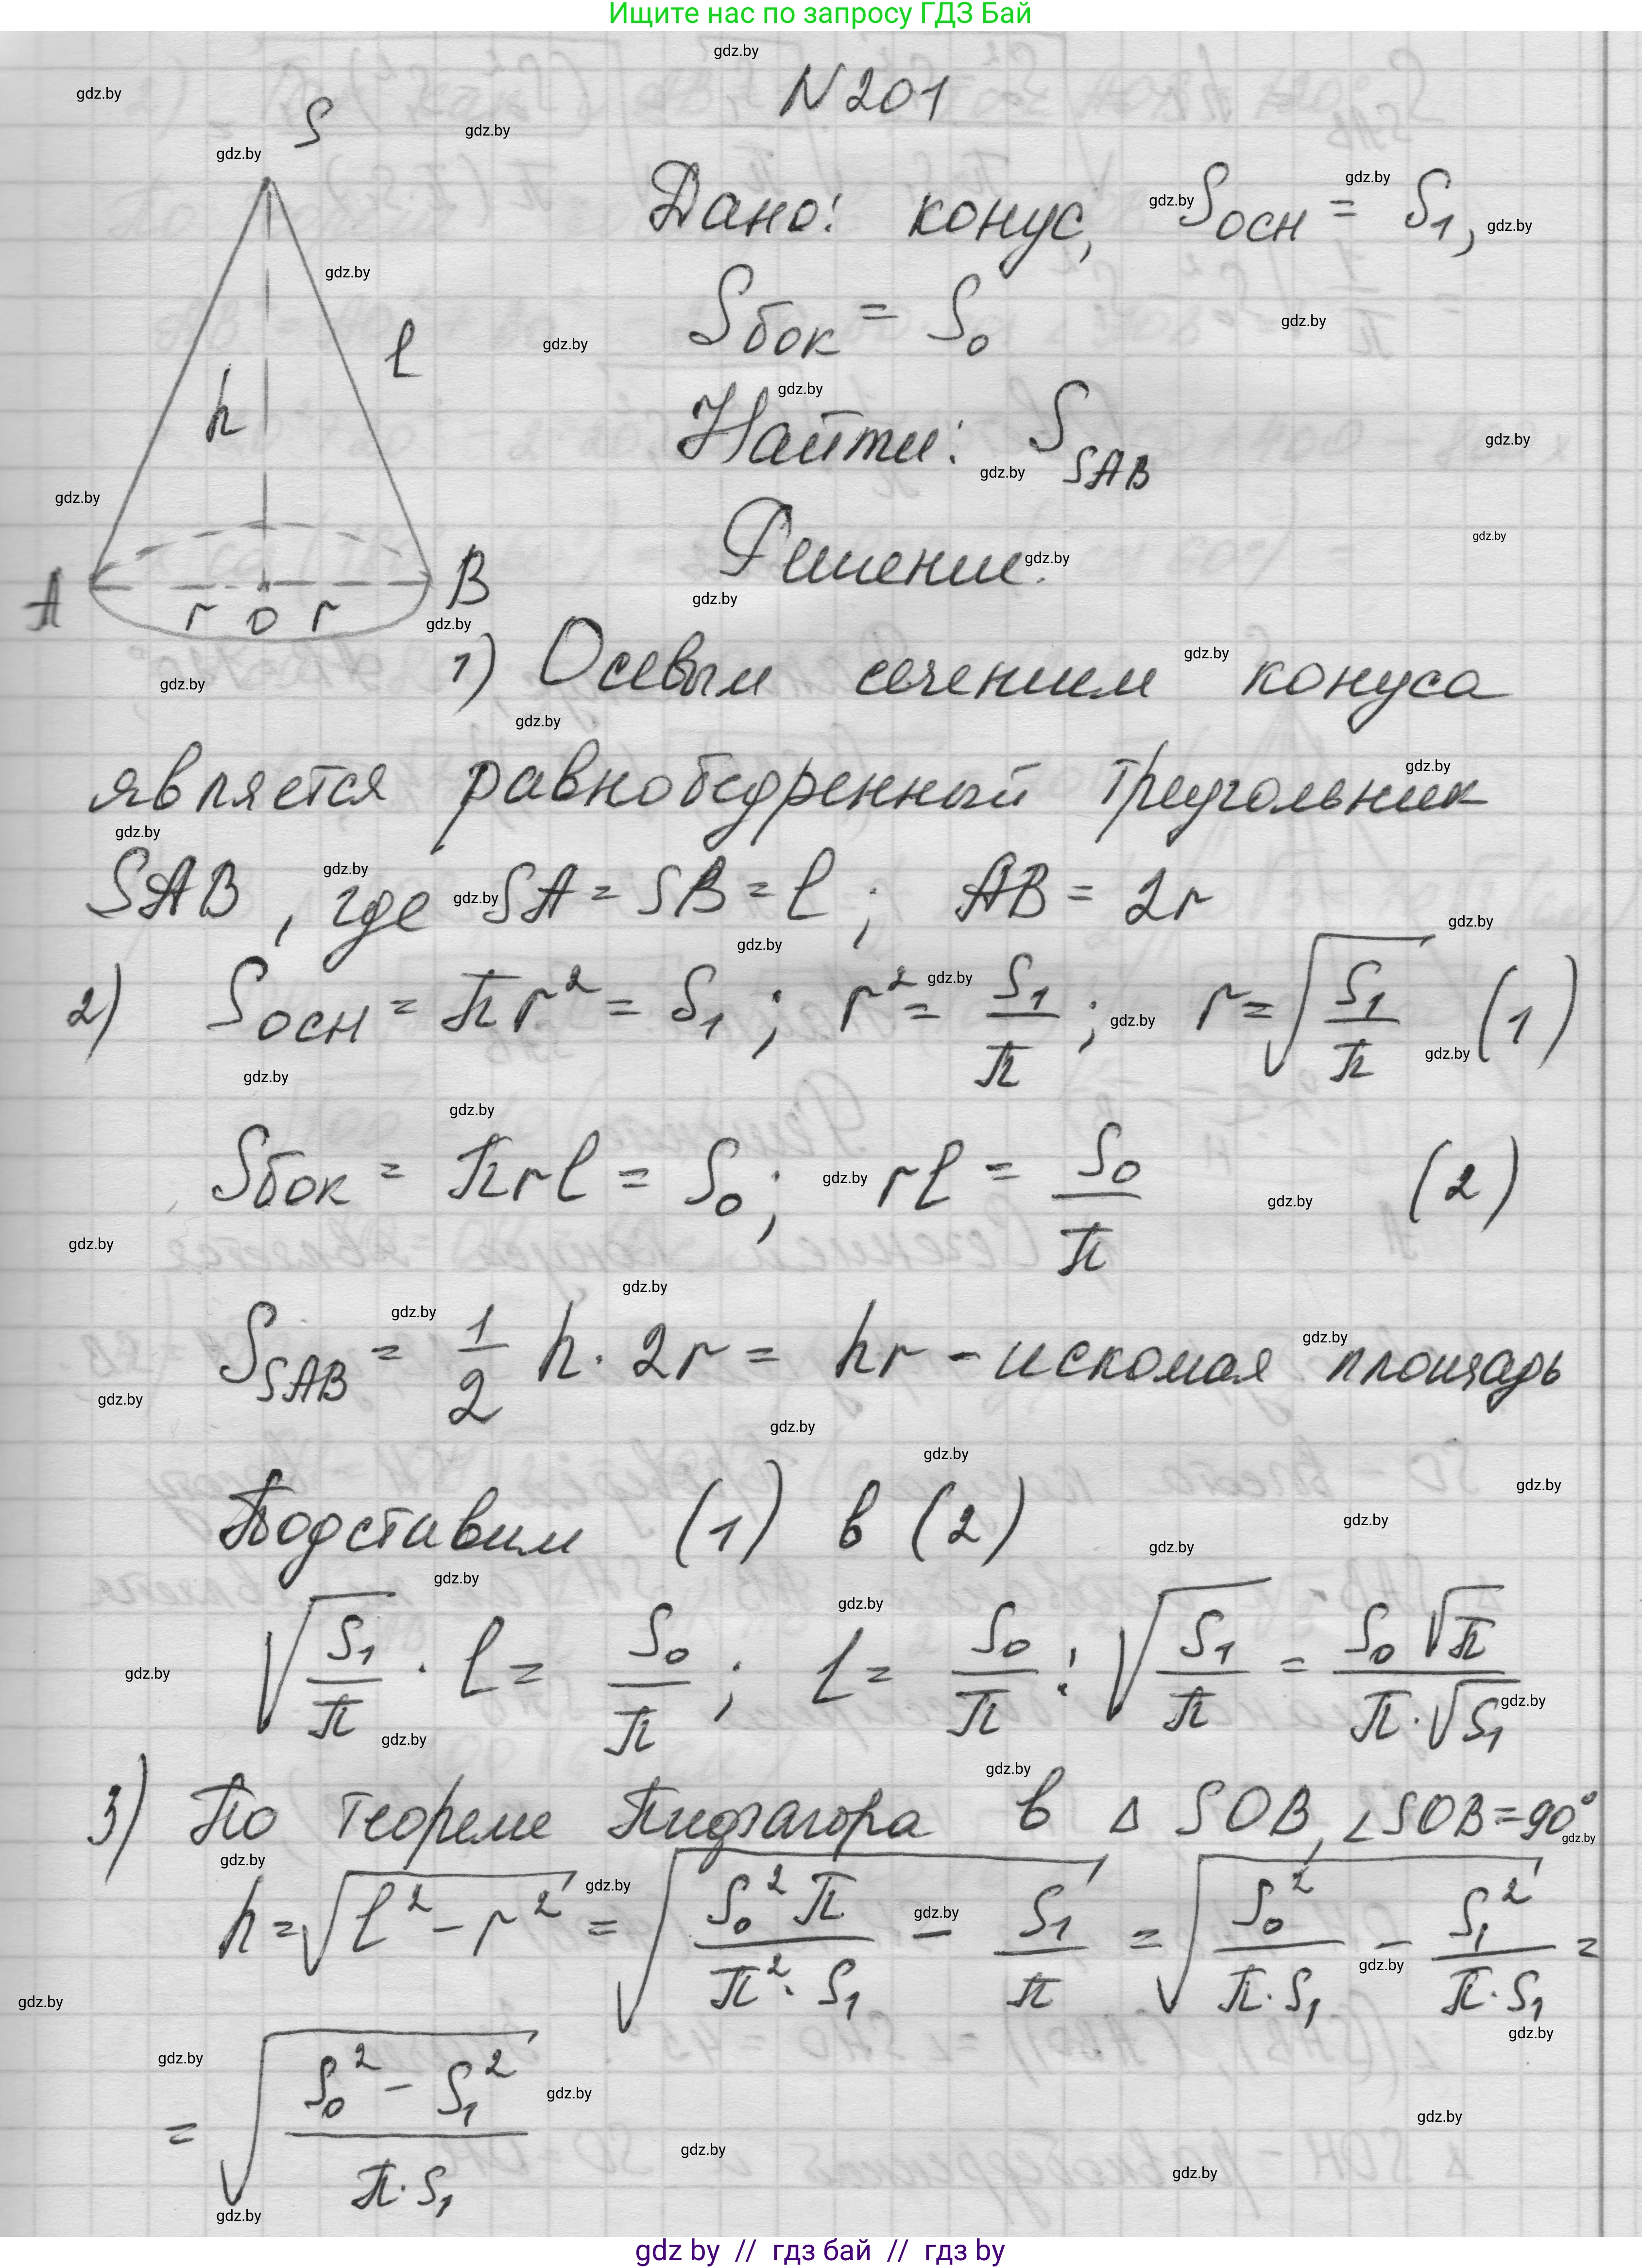 Ищите нас по запросу ГДЗ Бай
N 201
S
Дано: конус, Sосн = S₁,
Sбок = S₀
l
h
Найти: S_SAB
Решение.
A r o r B
1) Осевым сечением конуса
является равнобедренный треугольник
SAB, где SA = SB = l; AB = 2r
2) Sосн = πr² = S₁; r² = S₁/π; r = √(S₁/π) (1)
Sбок = πrl = S₀; rl = S₀/π (2)
S_SAB = 1/2 h · 2r = hr - искомая площадь
Подставим (1) в (2)
√(S₁/π) · l = S₀/π; l = S₀/π : √(S₁/π) = S₀√π/(π·√S₁)
3) По теореме Пифагора в Δ SOB, ∠SOB=90°
h = √(l² - r²) = √(S₀²π/(π²·S₁) - S₁/π) = √(S₀²/(π·S₁) - S₁²/(π·S₁)) =
= √((S₀² - S₁²)/(π·S₁))
gdz by // гдз бай // гдз by